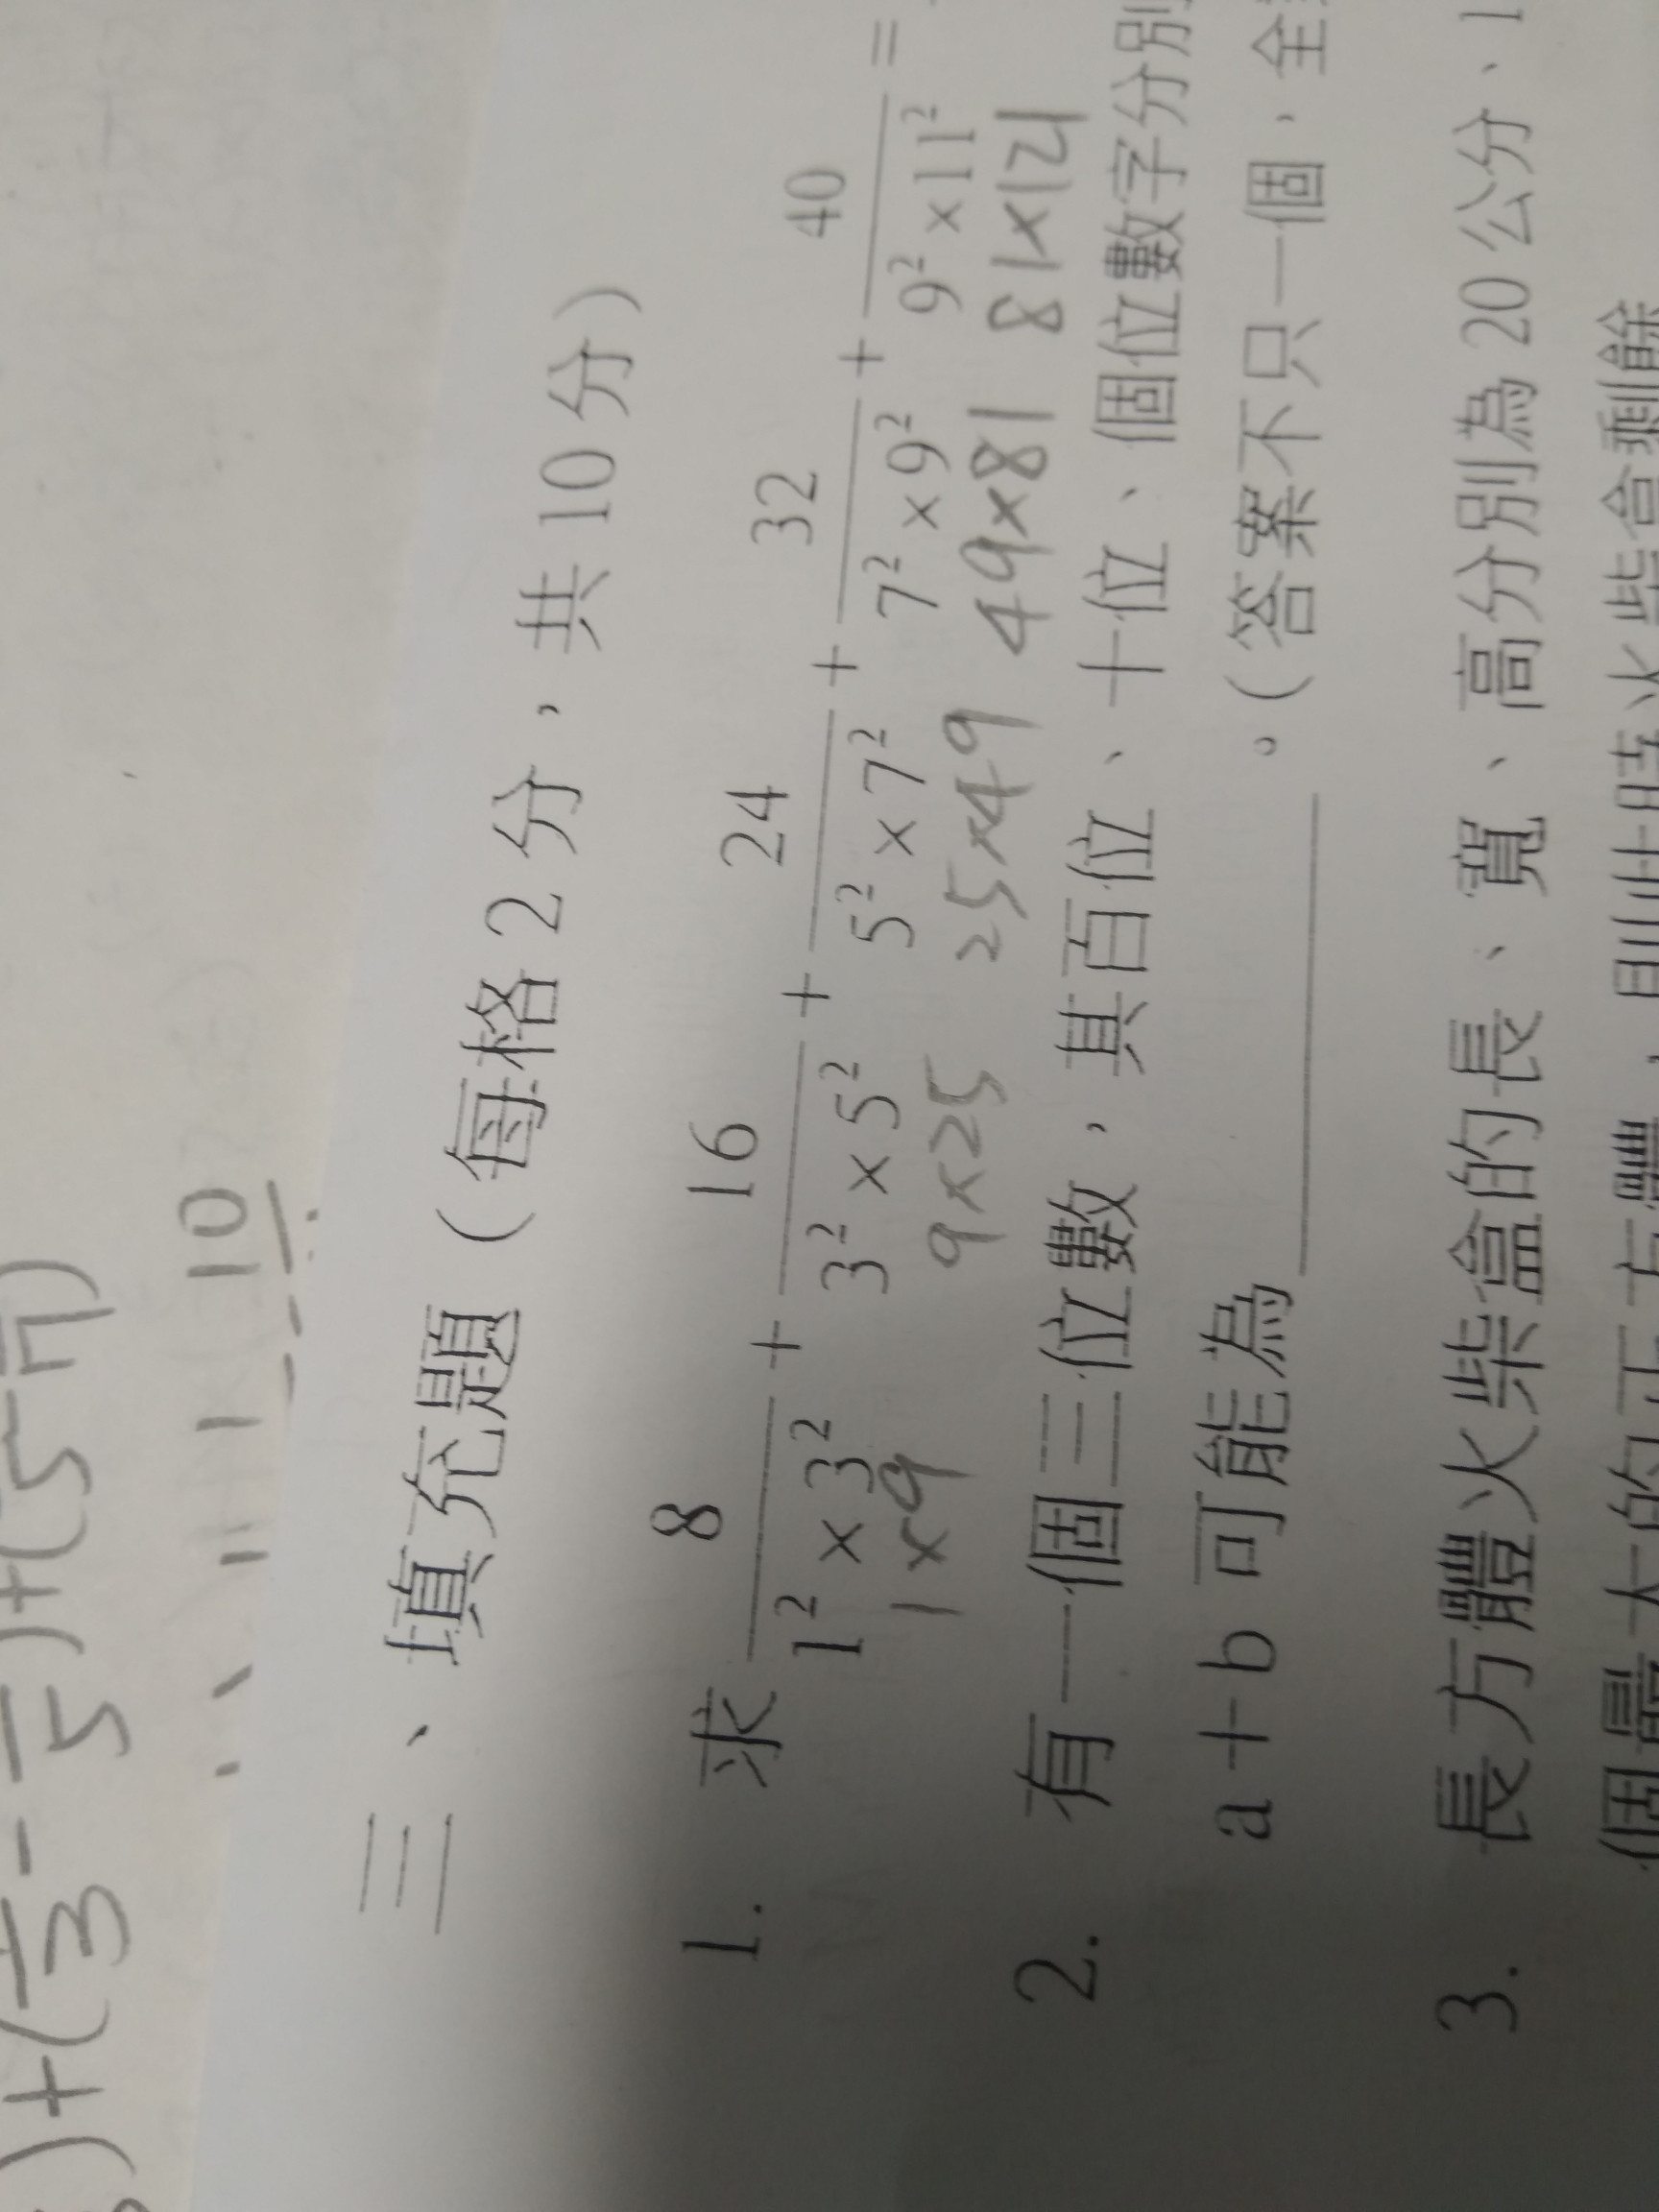 )+(1/3 - 1/5)+(1/5 1/7)
= 1 - 1 10
三、填充題（每格2分，共10分）
1. 求 8/(1²×3²) + 16/(3²×5²) + 24/(5²×7²) + 32/(7²×9²) + 40/(9²×11²) =
1×9 9×25 25×49 49×81 81×121
2. 有一個三位數，其百位、十位、個位數字分別
a＋b 可能為＿＿＿＿＿。（答案不只一個，全
3. 長方體火柴盒的長、寬、高分別為20公分、1
個最大的正方體，則此時火柴盒剩餘